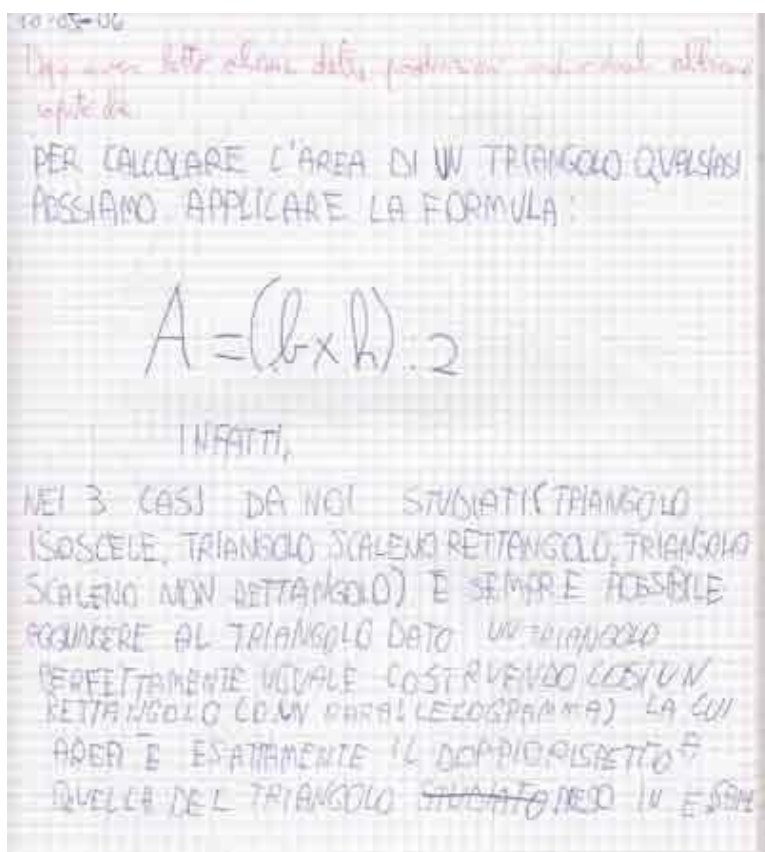 10-05-06
Dopo aver letto alcune delle produzioni individuali
PER CALCOLARE L'AREA DI UN TRIANGOLO QUALSIASI
POSSIAMO APPLICARE LA FORMULA:
A = (b x h) : 2
INFATTI,
NEI 3 CASI DA NOI STUDIATI (TRIANGOLO
ISOSCELE, TRIANGOLO SCALENO RETTANGOLO, TRIANGOLO
SCALENO NON RETTANGOLO) E SEMPRE POSSIBILE
AGGIUNGERE AL TRIANGOLO DATO UN TRIANGOLO
PERFETTAMENTE UGUALE COSTRUENDO COSI UN
RETTANGOLO (O UN PARALLELOGRAMMA) LA CUI
AREA E ESATTAMENTE IL DOPPIO RISPETTO A
QUELLA DEL TRIANGOLO STUDIATO PRESO IN ESAM